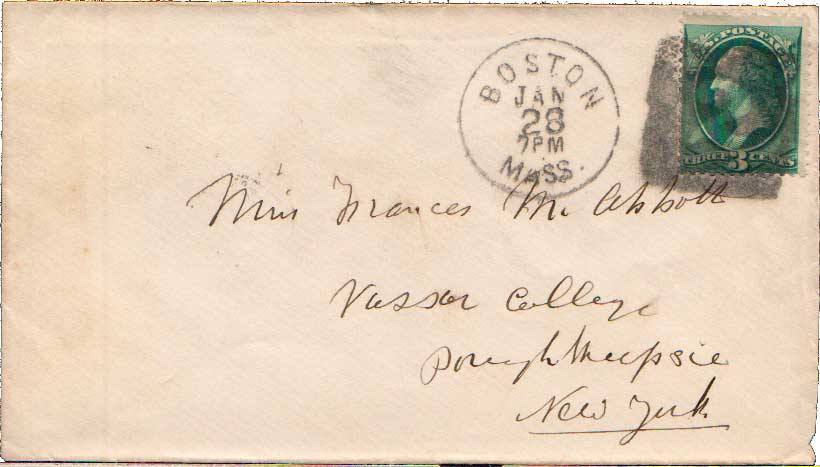 BOSTON
JAN
28
7PM
MASS.
U.S. POSTAGE
THREE 3 CENTS
Miss Frances M. Abbott
Vassar College
Poughkeepsie
New York